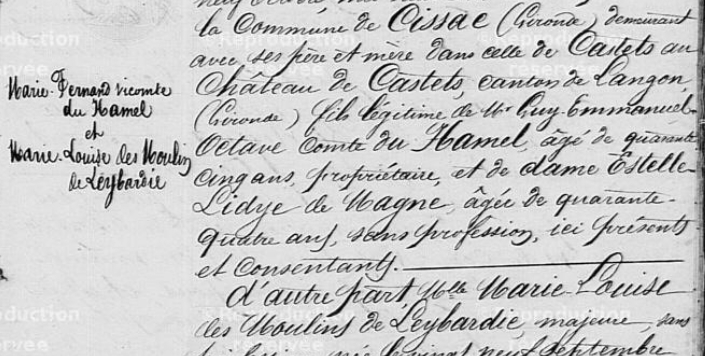 la Commune de Cissac (Gironde) demeurant
avec ses père et mère dans celle de Castets au
Château de Castets, canton de Langon,
(Gironde) fils légitime de Mr Guy-Emmanuel-
Octave Comte du Hamel, âgé de quarante
cinq ans, propriétaire, et de dame Estelle-
Lidye de Magne, âgée de quarante-
quatre ans, sans profession, ici présents
et consentants.
d'autre part, Melle Marie-Louise
des Moulins de Leybardie, majeure, sans
née le vingt neuf septembre
Marie-Fernand vicomte
du Hamel
et
Marie-Louise des Moulins
de Leybardie